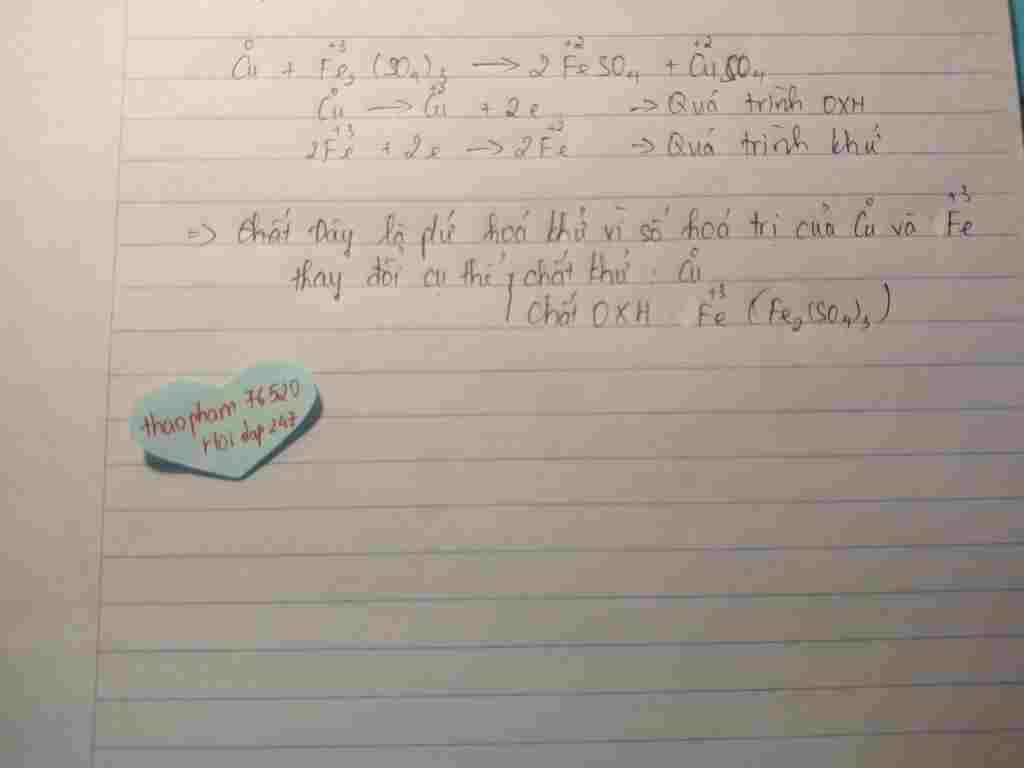 0 +3 +2 +2
Cu + Fe₂(SO₄)₃ → 2FeSO₄ + CuSO₄
Cu → Cu + 2e → Quá trình OXH
2Fe + 2e → 2Fe → Quá trình khử
⇒ Chất này là p/ứ hoá khử vì số hoá trị của Cu và Fe
thay đổi cụ thể chất khử : Cu
Chất OXH : Fe (Fe₂(SO₄)₃)
thaopham 76520
Hoi dap 247